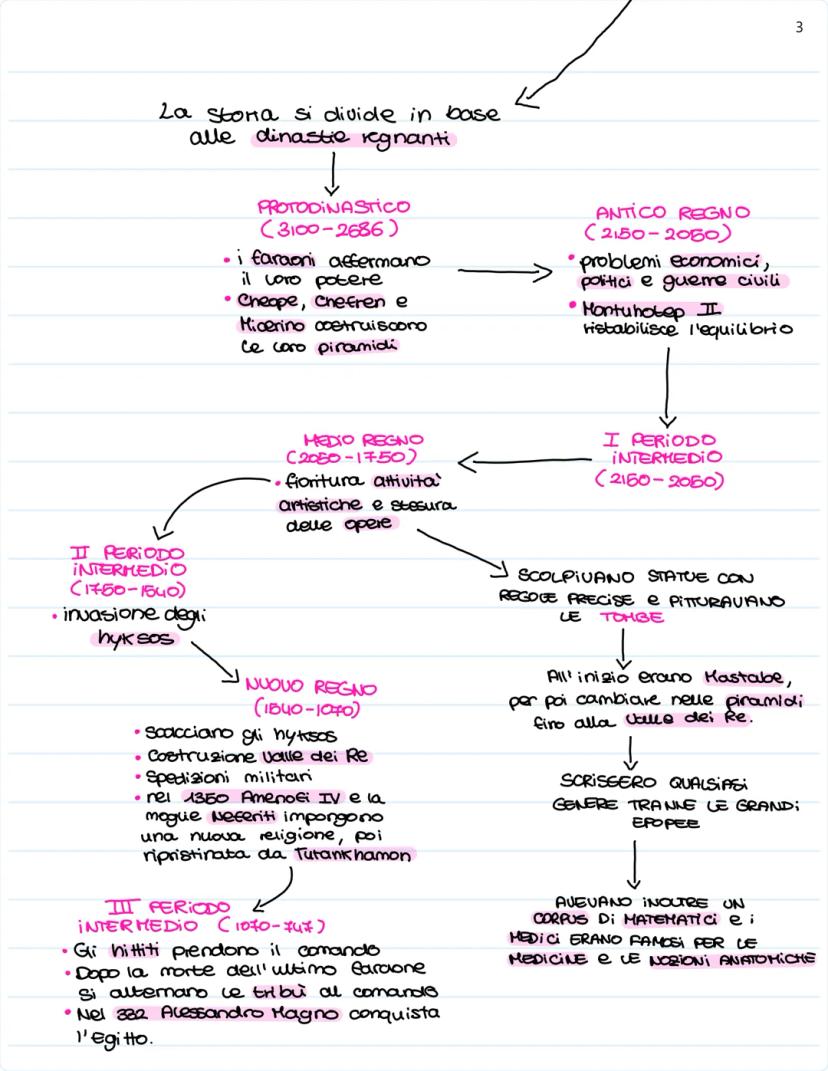 3
La storia si divide in base
alle dinastie regnanti
PROTODINASTICO
(3100-2686)
• i faraoni affermano
il loro potere
• Cheope, Chefren e
Micerino costruiscono
le loro piramidi
ANTICO REGNO
(2150-2050)
• problemi economici,
politici e guerre civili
• Montuhotep II
ristabilisce l'equilibrio
I PERIODO
INTERMEDIO
(2150-2050)
MEDIO REGNO
(2050-1750)
• fioritura attività
artistiche e stesura
delle opere
II PERIODO
INTERMEDIO
(1750-1540)
• invasione degli
hyksos
SCOLPIVANO STATUE CON
REGOLE PRECISE e PITTURAVANO
LE TOMBE
All'inizio erano Mastabe,
per poi cambiare nelle piramidi
fino alla Valle dei Re.
SCRISSERO QUALSIASI
GENERE TRANNE LE GRANDI
EPOPEE
AVEVANO INOLTRE UN
CORPUS DI MATEMATICI e i
MEDICI ERANO FAMOSI PER LE
MEDICINE e LE NOZIONI ANATOMICHE
NUOVO REGNO
(1540-1070)
• Scacciano gli hyksos
• Costruzione Valle dei Re
• Spedizioni militari
• nel 1350 Amenofi IV e la
moglie Neferiti impongono
una nuova religione, poi
ripristinata da Tutankhamon
III PERIODO
INTERMEDIO (1070-747)
• Gli hittiti prendono il comando
• Dopo la morte dell'ultimo faraone
si alternano le tribù al comando
• Nel 332 Alessandro Magno conquista
l'Egitto.